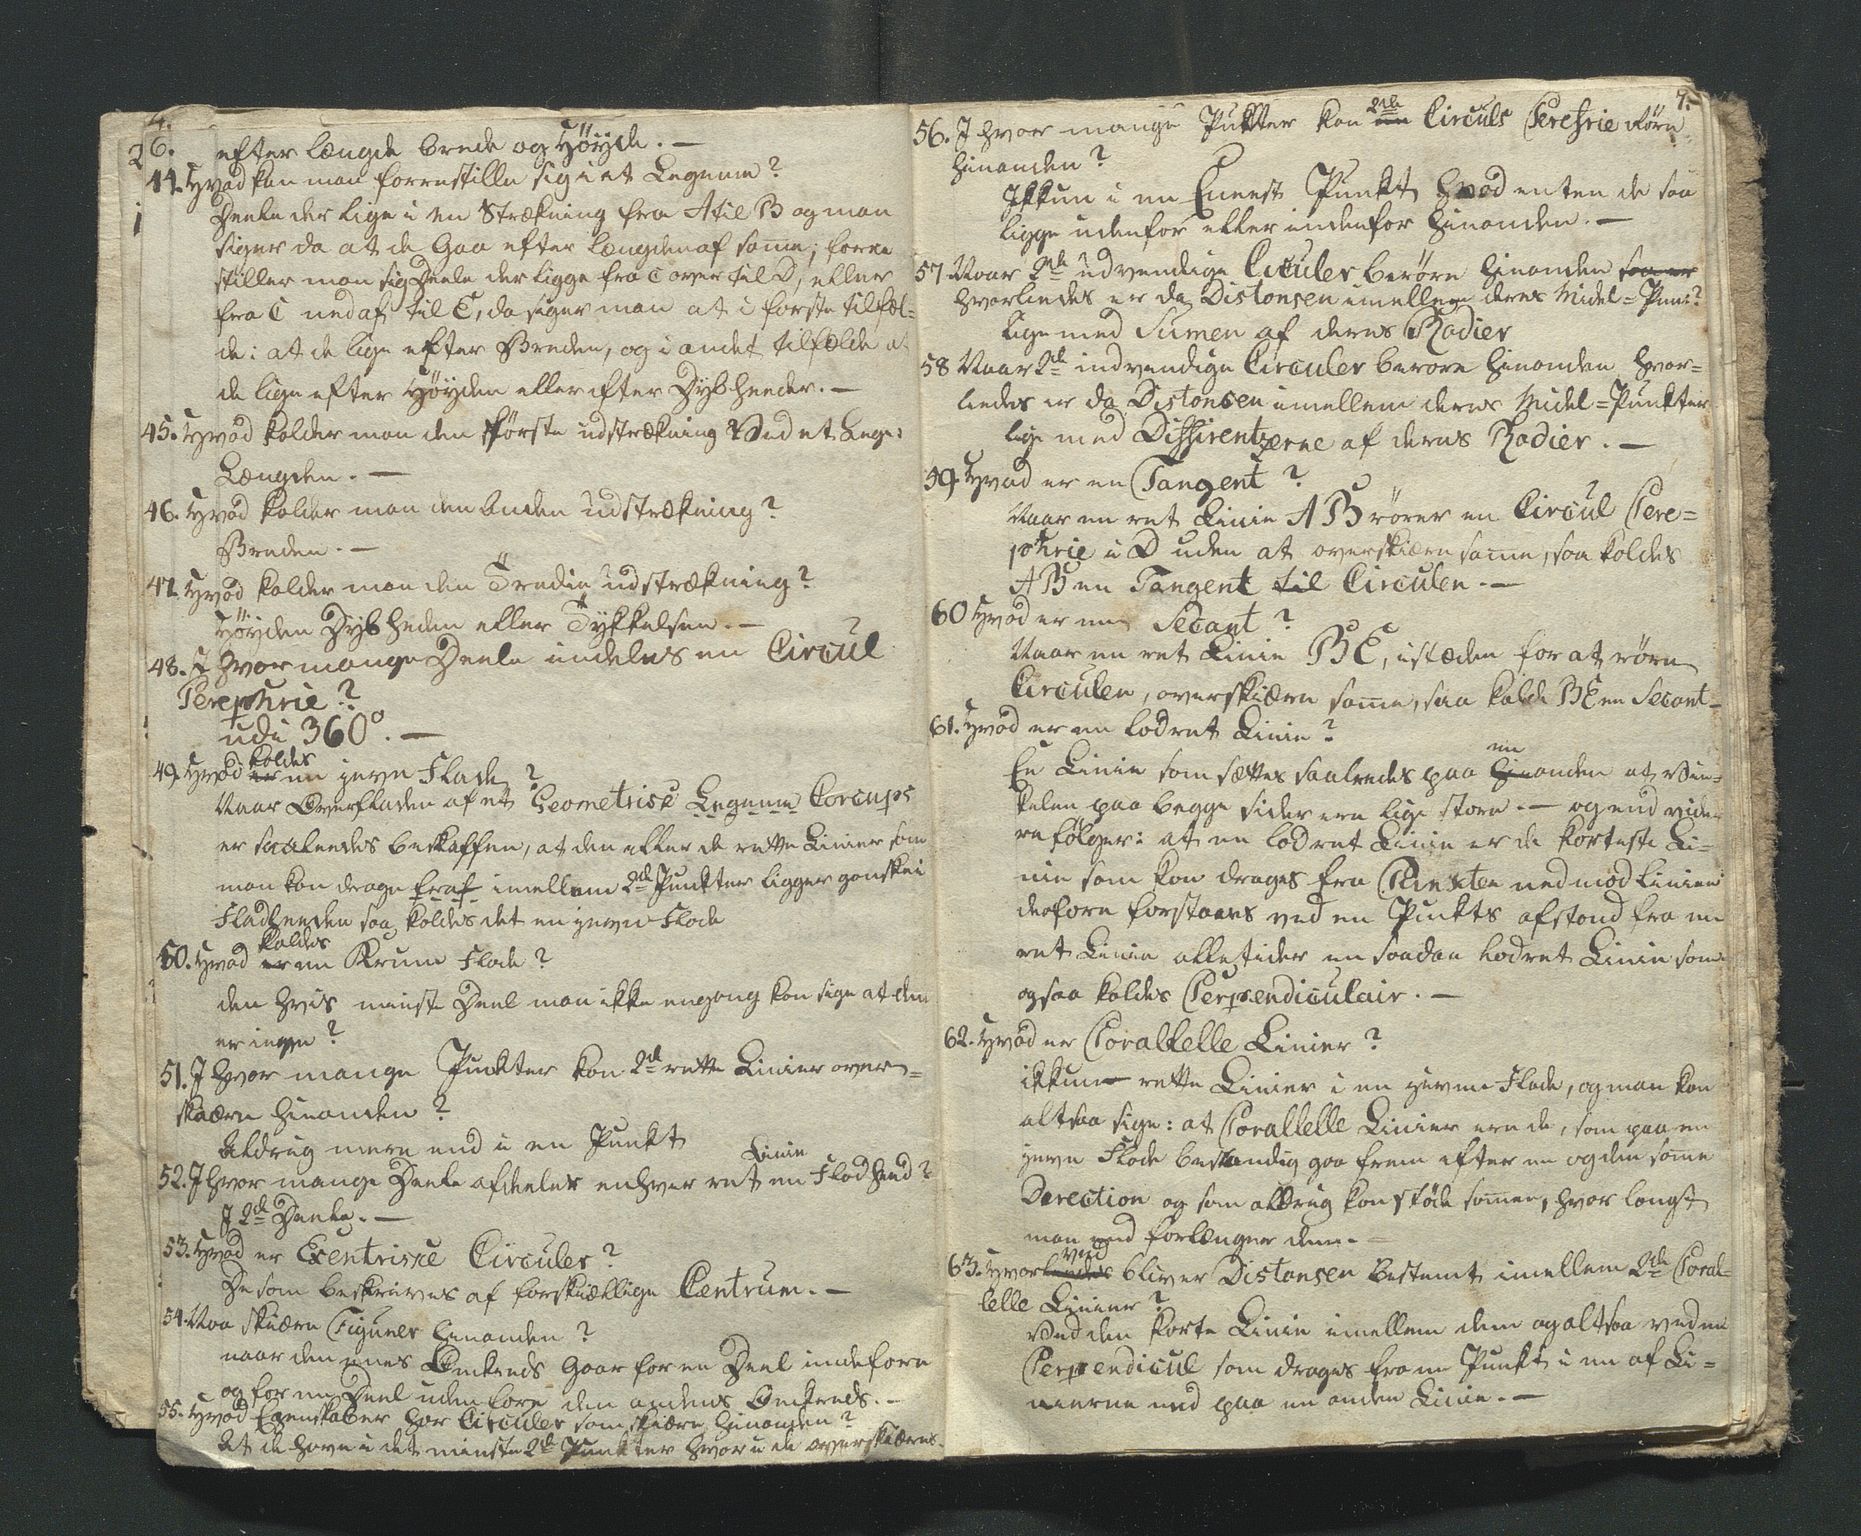 6.
efter længde brede og Höyde. —
44. Hvad kan man forrestille sig i et Legeme?
Deele der lige i en Strækning fra A til B og man
siger da at de Gaa efter Længden af samme; forre
stiller man sig Deele der ligge fra C over til D, eller
fra C ned af til E, da siger man at i første tilfæl=
de: at de lige efter Breden, og i andet tilfælde at
de lige efter Høyden eller efter Dybheeder. —
45. Hvad kalder man den første udstrækning Ved et Lege:
Længden. —
46. Hvad kalder man den Anden udstrækning?
Breden. —
47. Hvad kalder man den Tredie udstrækning?
Höyden Dybheden eller Tykkelsen. —
48. I hvor mange Deele indeles en Circul
Perephrie?
udi 360°. —
49. Hvad er kaldes en jevn Flade?
Naar Overfladen af et Geometrisk Legeme Corcups
er saaleedes beskaffen, at den eller de rette Linier som
man kan drage fra af imellem 2de Punkter ligger ganske i
Fladheeden saa kaldes det en jevn Flade
50. Hvad er kaldes en Krum Flade?
den hvis minste Deel man ikke engang kan sige at den
er jevn?
51. I hvor mange Puncter kan 2de rette Linier over=
skiære hinanden?
Aldrig mere end i en Punkt
52. I hvor mange Deele afdeeler enhver ret Linie en Fladheed?
I 2de Deele. —
53. Hvad er Exentriske Circuler?
De som beskrives af forskiællige Centrum. —
54. Naa skiære Figurer hinanden?
naar den eenes Omkreds gaar for en Deel indeføre
og for en Deel uden fore den andens Omkreds. —
55. Hvad Egenskaber har Circuler som skiære hinanden?
At de have i det minste 2de Punkter hvor i de overskiæres.
7.
56. I hvor mange Pukter kan en 2de Circuls Perefrie røre
hinanden?
Ikkun i en Eneest Punkt hvad enten de saa
ligge udenfor eller indenfor hinanden. —
57 Naar 2de udvendige Circuler berøre hinanden saa er
hvorledes er da Distansen imellem deres Midel=Pun:?
Lige med Sumen af deres Radier
58 Naar 2de indvendige Circuler berøre hinanden hvor=
ledes er da Distansen imellem deres Midel=Punkter
Lige med Diffirentzerne af deres Radier. —
59. Hvad er en Tangent?
Naar en ret Linie AB rører en Circul Pere=
phrie i D uden at overskiære samme, saa kaldes
AB en Tangent til Circulen. —
60 Hvad er en Secant?
Naar en ret Linie BE, istæden for at røre
Circulen, overskiære samme, saa kalde BE en Secant —
61. Hvad er en lodret Linie?
En Linie som sættes saaleedes paa hin en anden at Vin=
kelen paa begge sider ere lige store. — og end vide
re følger: at en lodret Linie er de korteste Li=
nie som kan drages fra Puncten ned mod Linien
derfore forstaaes ved en Puckts afstand fra en
ret Linie alletider en saadan lodret Linie som
ogsaa kaldes Perpendiculair. —
62. Hvad er Paralelle Linier?
ikkun rette Linier i en jevne Flade, og man kan
altsaa sige: at Parallelle Linier ere de, som paa en
jevn Flade bestandig gaa frem efter en og den samme
Derection og som aldrig kan støde sammen, hvor langt
man end forlænger dem. —
63. Hvorleedes ved bliver Distansen bestemt imellem 2de Paral=
lelle Linier?
Ved den korte Linie imellem dem og altsaa ved en
Perpendicul som drages fra en Punkt i en af Li=
nierne ned paa en anden Linie. —